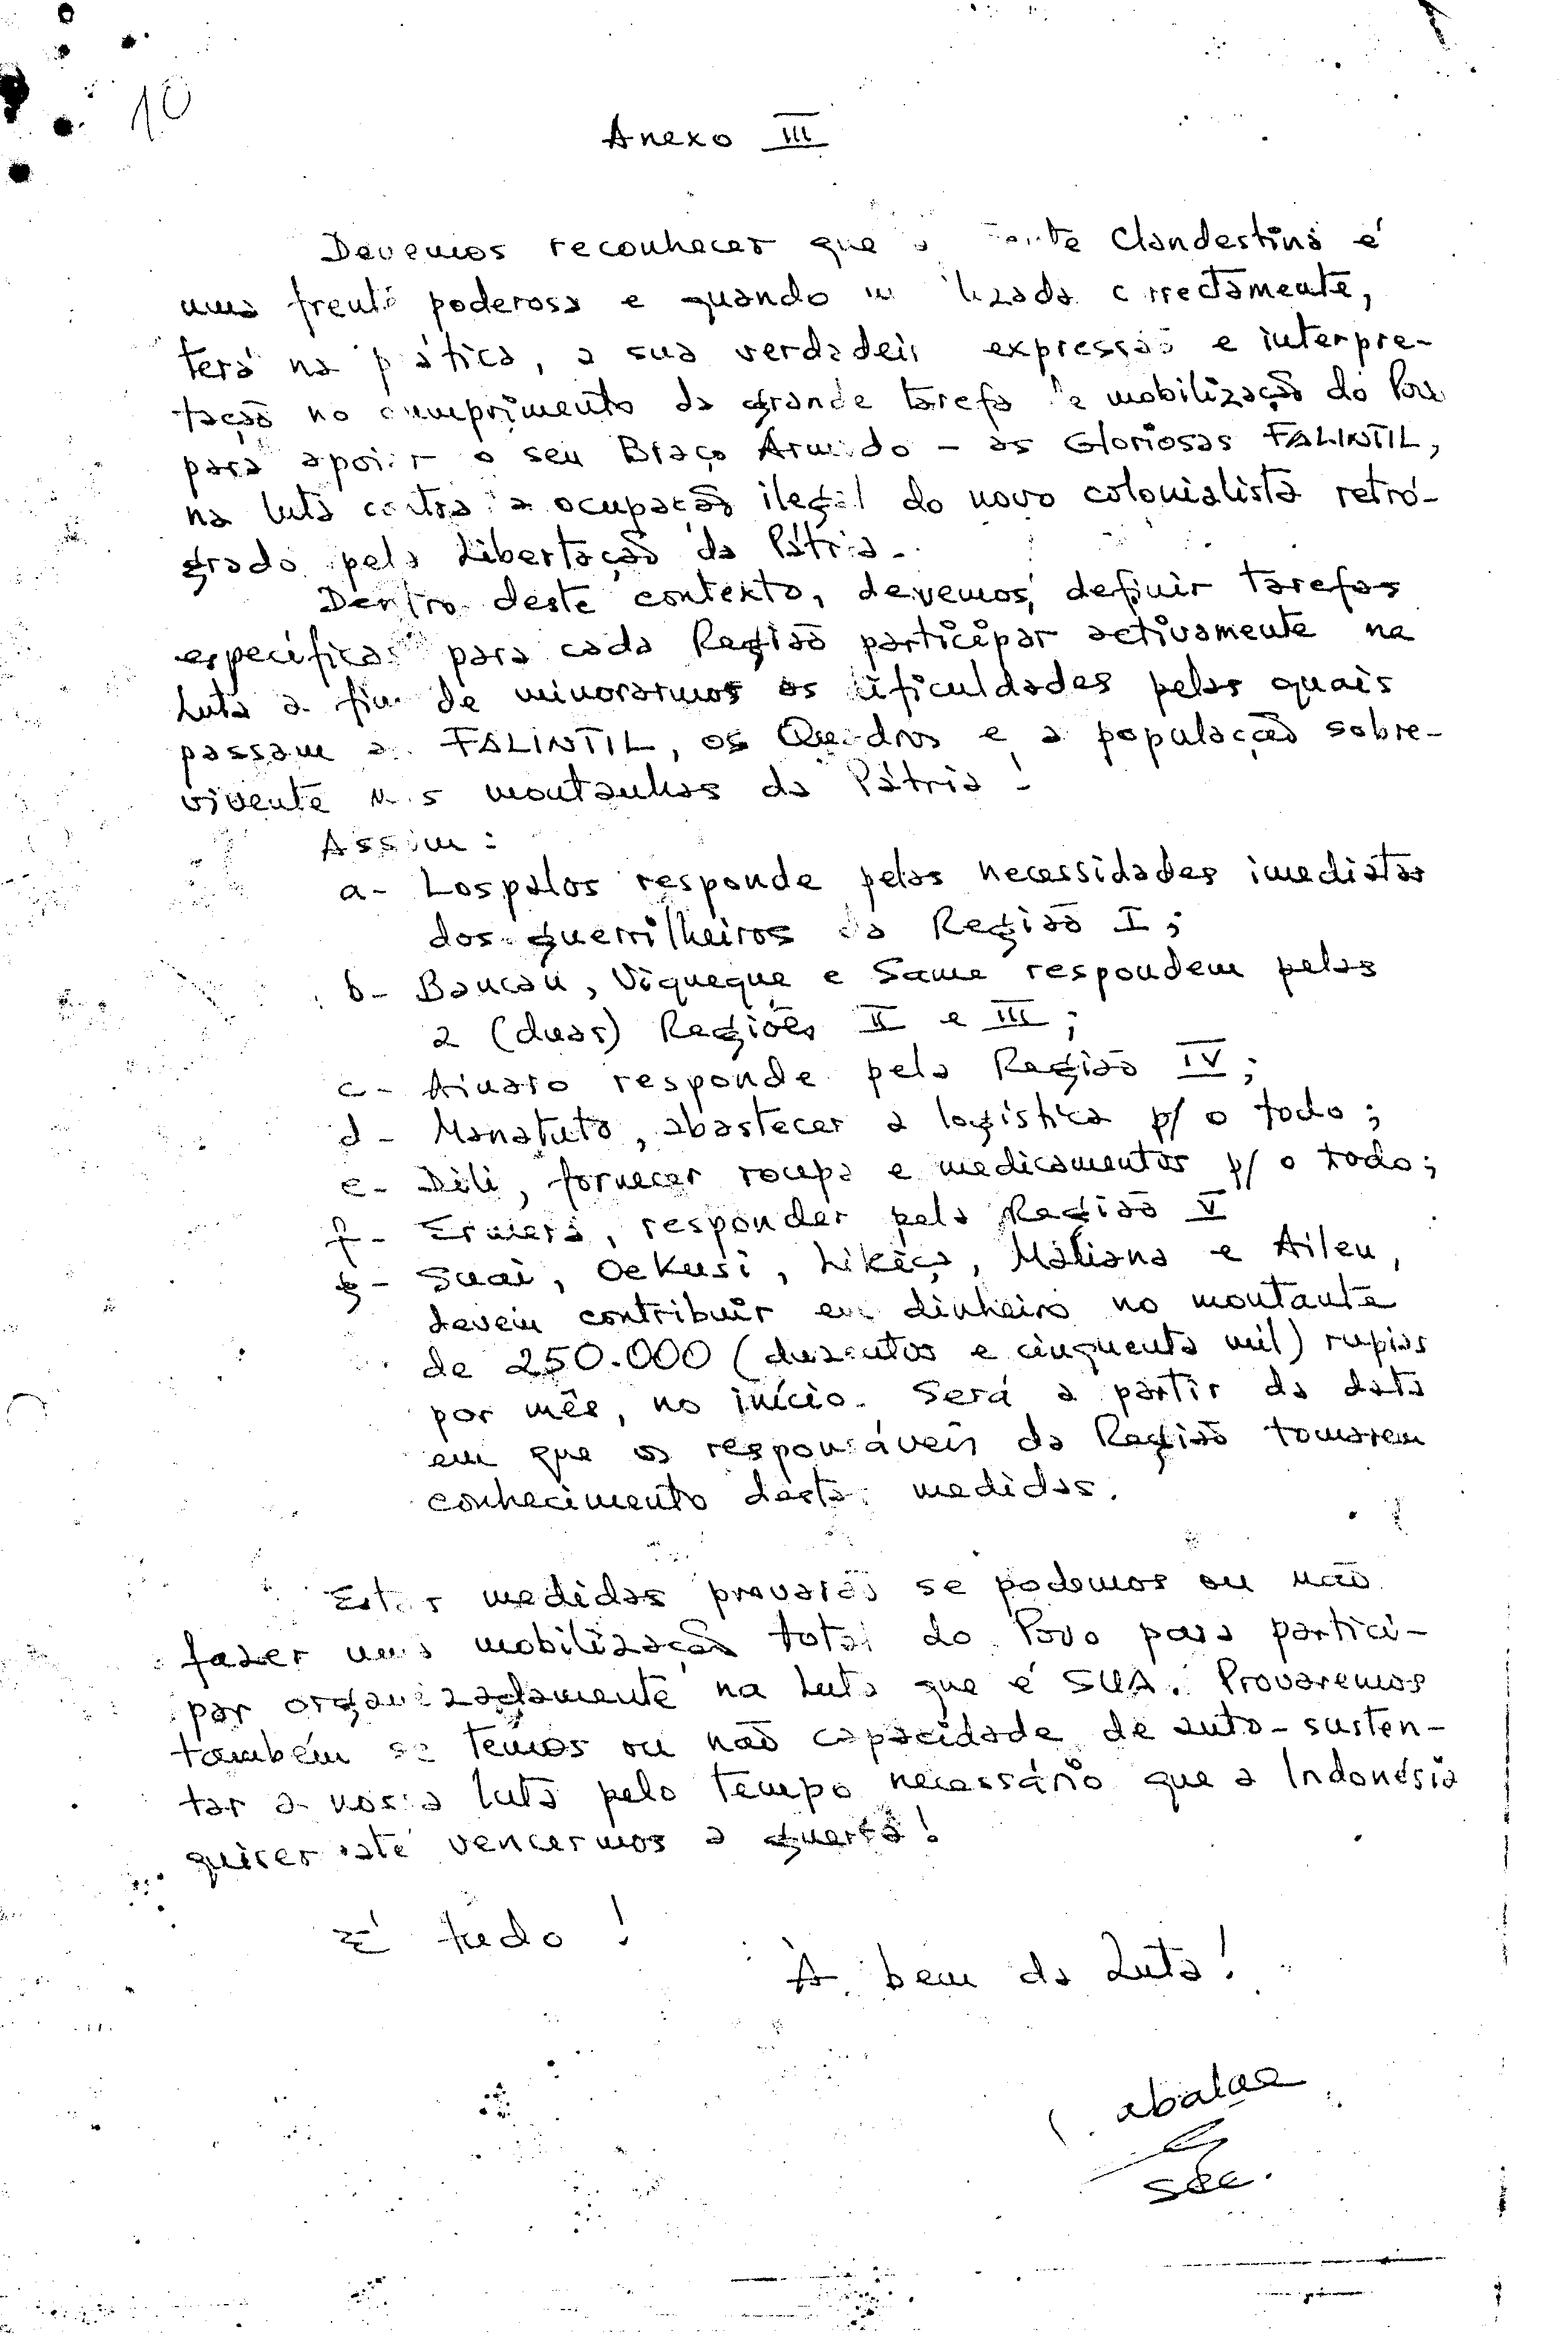 10
Anexo III
Devemos reconhecer que a Frente Clandestina é
uma frente poderosa e quando correctamente,
terá na prática, a sua verdadeira expressão e interpre-
tação no cumprimento da grande tarefa de mobilização do Povo
para apoiar o seu Braço Armado - as Gloriosas FALINTIL,
na luta contra a ocupação ilegal do novo colonialista retró-
grado pela Libertação da Pátria.
Dentro deste contexto, devemos definir tarefas
específicas para cada Região participar activamente na
Luta a fim de minorarmos as dificuldades pelas quais
passam as FALINTIL, os Quadros e a população sobre-
vivente nas montanhas da Pátria!
Assim:
a- Lospalos responde pelas necessidades imediatas
dos guerrilheiros da Região I;
b- Baucau, Viqueque e Same respondem pelas
2 (duas) Regiões II e III;
c- Ainaro responde pela Região IV;
d- Manatuto, abastecer a logística p/ o todo;
e- Dili, fornecer roupa e medicamentos p/ o todo;
f- Ermera, responder pela Região V
g- Suai, Oekusi, Likiça, Maliana e Aileu,
devem contribuir em dinheiro no montante
de 250.000 (duzentos e cinquenta mil) rupias
por mês, no início. Será a partir da data
em que os responsáveis da Região tomarem
conhecimento destas medidas.
Estas medidas provarão se podemos ou não
fazer uma mobilização total do Povo para partici-
par organizadamente na Luta que é SUA. Provaremos
também se temos ou não capacidade de auto-susten-
tar a nossa luta pelo tempo necessário que a Indonésia
quiser até vencermos a guerra!
É tudo!
À bem da Luta!
Sec.